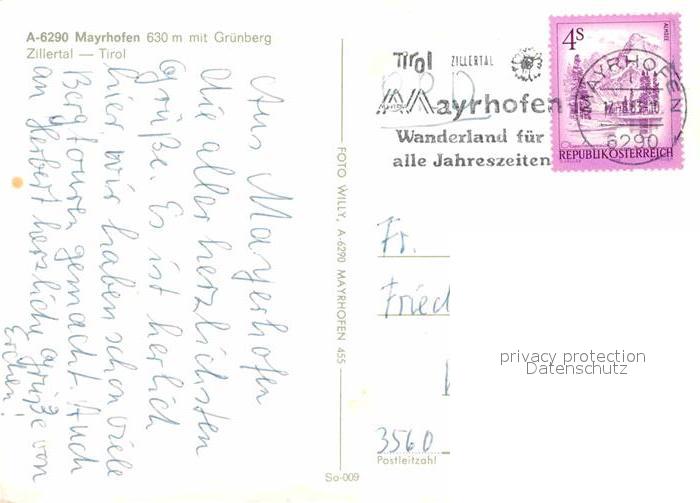 A-6290 Mayrhofen 630 m mit Grünberg
Zillertal — Tirol
Aus Mayerhofen
die aller herzlichsten
Grüße. Es ist herlich
hier, wir haben schon viele
Bergtouren gemacht. Auch
an Herbert herzliche Grüße von
FOTO WILLY, A-6290 MAYRHOFEN 455
So-009
Tirol ZILLERTAL
Mayrhofen
Wanderland für
alle Jahreszeiten
4S
ALMSEE
REPUBLIK ÖSTERREICH
MAYRHOFEN
6290
Fr.
Fried
3560
Postleitzahl
privacy protection
Datenschutz